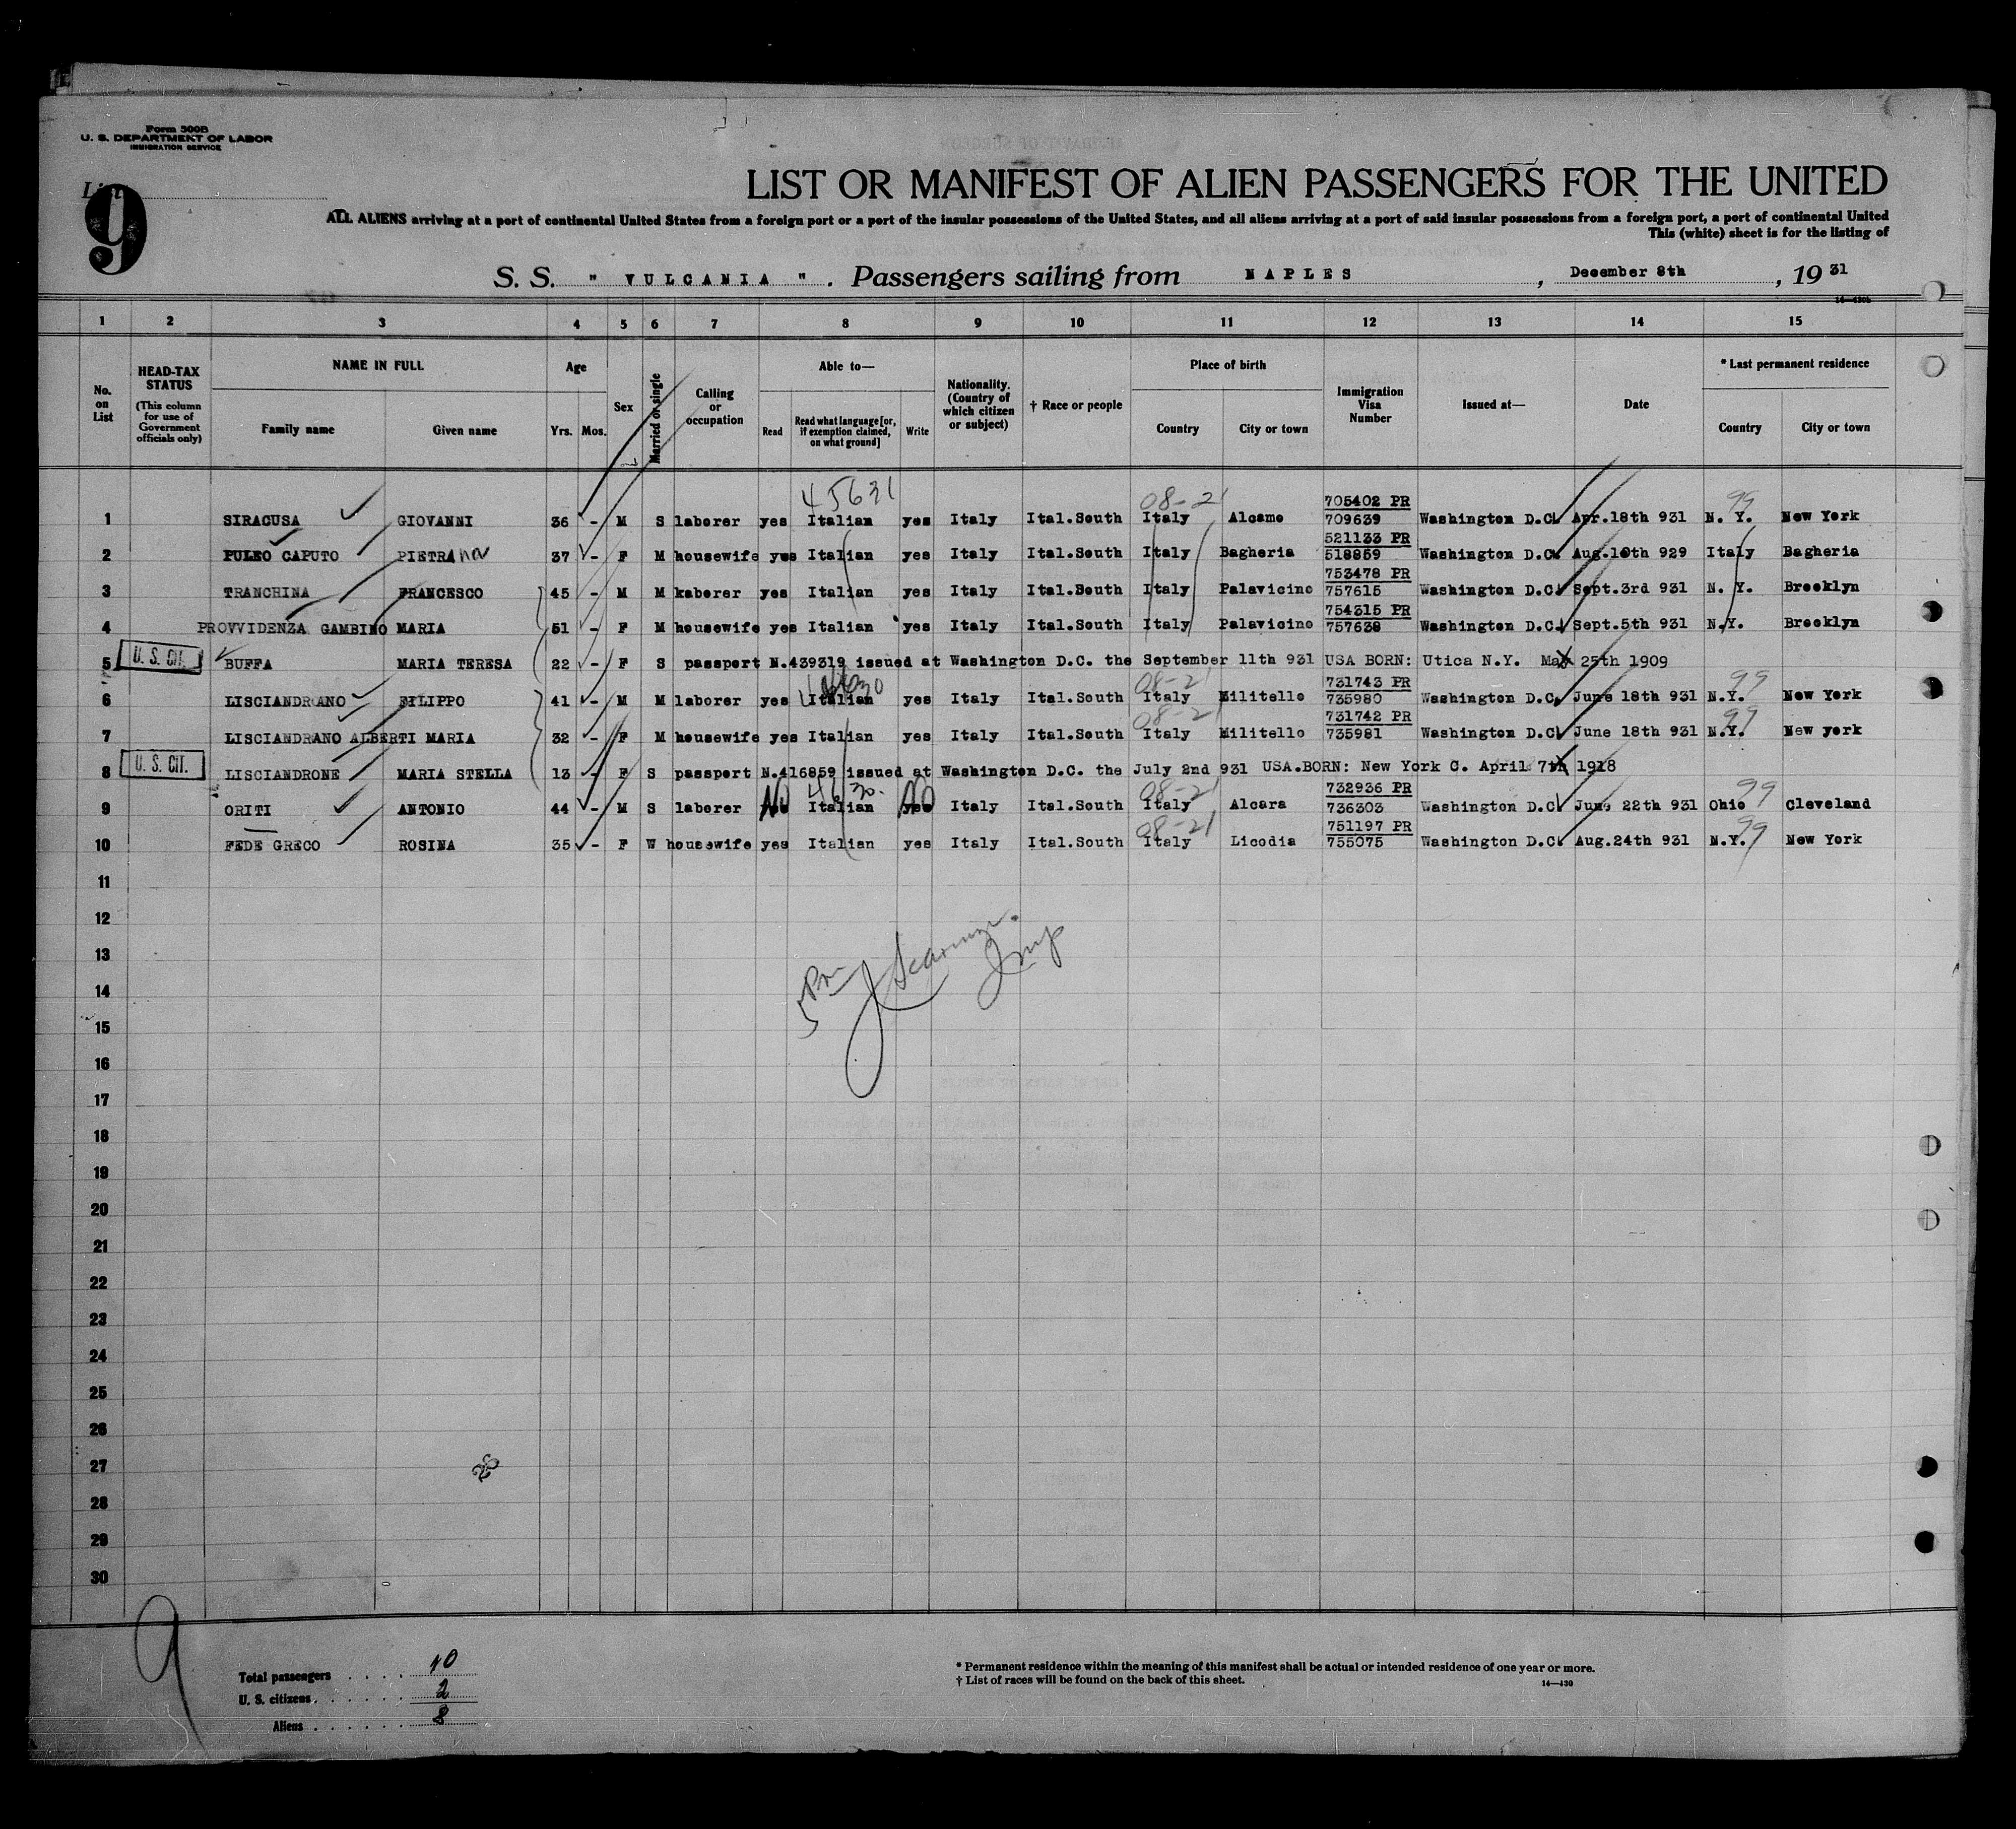 Form 500B
U. S. DEPARTMENT OF LABOR
IMMIGRATION SERVICE
List 9
LIST OR MANIFEST OF ALIEN PASSENGERS FOR THE UNITED
ALL ALIENS arriving at a port of continental United States from a foreign port or a port of the insular possessions of the United States, and all aliens arriving at a port of said insular possessions from a foreign port, a port of continental United
This (white) sheet is for the listing of
S. S. " VULCANIA ". Passengers sailing from NAPLES, December 8th, 19 31
14—430b
1 2 3 4 5 6 7 8 9 10 11 12 13 14 15
No. on List
HEAD-TAX STATUS (This column for use of Government officials only)
NAME IN FULL
Family name Given name
Age
Yrs. Mos.
Sex
Married or single
Calling or occupation
Able to—
Read Read what language [or, if exemption claimed, on what ground] Write
Nationality. (Country of which citizen or subject)
† Race or people
Place of birth
Country City or town
Immigration Visa Number
Issued at—
Date
* Last permanent residence
Country City or town
45631 08-21 705402 PR 99
1 SIRACUSA GIOVANNI 36 - M S laborer yes Italian yes Italy Ital.South Italy Alcamo 709639 Washington D.C. Apr.18th 931 N. Y. New York
521133 PR
2 PULEO CAPUTO PIETRA 37 - F M housewife yes Italian yes Italy Ital.South Italy Bagheria 518859 Washington D.C. Aug.10th 929 Italy Bagheria
753478 PR
3 TRANCHINA FRANCESCO 45 - M M kaborer yes Italian yes Italy Ital.South Italy Palavicino 757615 Washington D.C. Sept.3rd 931 N. Y. Brooklyn
754315 PR
4 PROVVIDENZA GAMBINO MARIA 51 - F M housewife yes Italian yes Italy Ital.South Italy Palavicino 757638 Washington D.C. Sept.5th 931 N.Y. Brooklyn
5 U. S. CIT. BUFFA MARIA TERESA 22 - F S passport N.439319 issued at Washington D.C. the September 11th 931 USA BORN: Utica N.Y. 25th 1909
08-21 731743 PR 99
6 LISCIANDRANO FILIPPO 41 - M M laborer yes Italian yes Italy Ital.South Italy Militello 735980 Washington D.C. June 18th 931 N.Y. New York
08-21 731742 PR 99
7 LISCIANDRANO ALBERTI MARIA 32 - F M housewife yes Italian yes Italy Ital.South Italy Militello 735981 Washington D.C. June 18th 931 N.Y. New york
8 U. S. CIT. LISCIANDRONE MARIA STELLA 13 - F S passport N.416859 issued at Washington D.C. the July 2nd 931 USA.BORN: New York C. April 7th 1918
08-21 732936 PR 99
9 ORITI ANTONIO 44 - M S laborer No Italian No Italy Ital.South Italy Alcara 736303 Washington D.C. June 22th 931 Ohio Cleveland
08-21 751197 PR 99
10 FEDE GRECO ROSINA 35 - F W housewife yes Italian yes Italy Ital.South Italy Licodia 755075 Washington D.C. Aug.24th 931 N.Y. New York
11
12
13
14
15
16
17
18
19
20
21
22
23
24
25
26
27
28
29
30
9
Total passengers 10
U. S. citizens 2
Aliens 8
* Permanent residence within the meaning of this manifest shall be actual or intended residence of one year or more.
† List of races will be found on the back of this sheet.
14—430